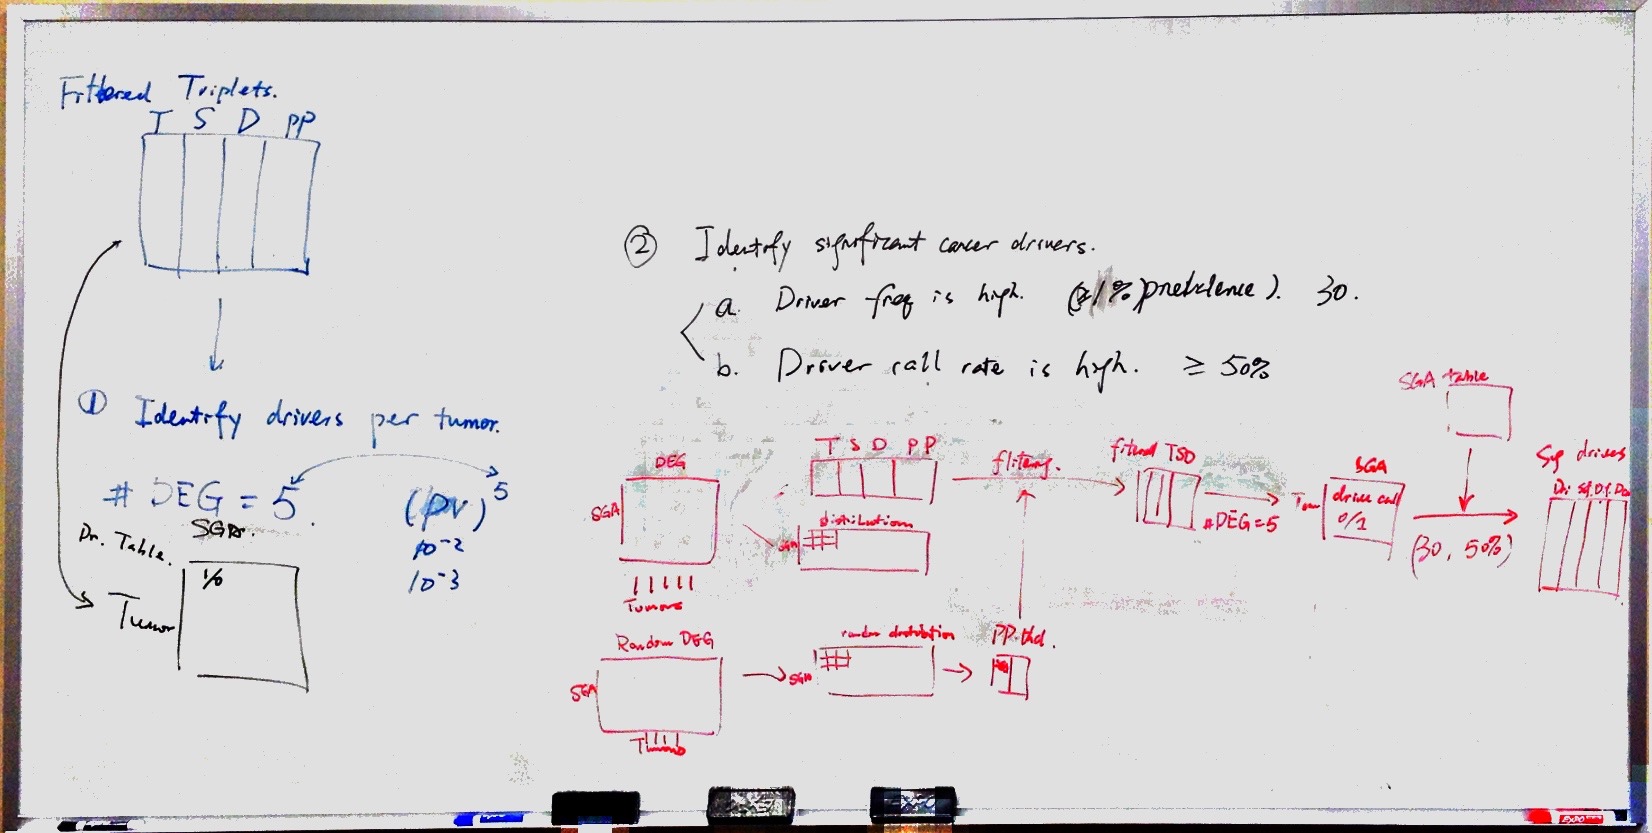 Filtered Triplets.
T S D PP
① Identify drivers per tumor.
# DEG = 5. (pv)^5
10^-2
10^-3
Dr. Table.
SGA.
1/0
Tumor
② Identify significant cancer drivers.
a. Driver freq is high. (≥1% prevalence). 30.
b. Driver call rate is high. ≥ 50%
DEG
SGA
Tumors
T S D PP
distribution
SGA
filtering.
filtered TSD
#DEG=5
SGA
Tum
driver call
0/1
SGA table
(30, 50%)
Sig drivers
Random DEG
SGA
Tumors
random distribution
SGA
PP thd.
EXPO